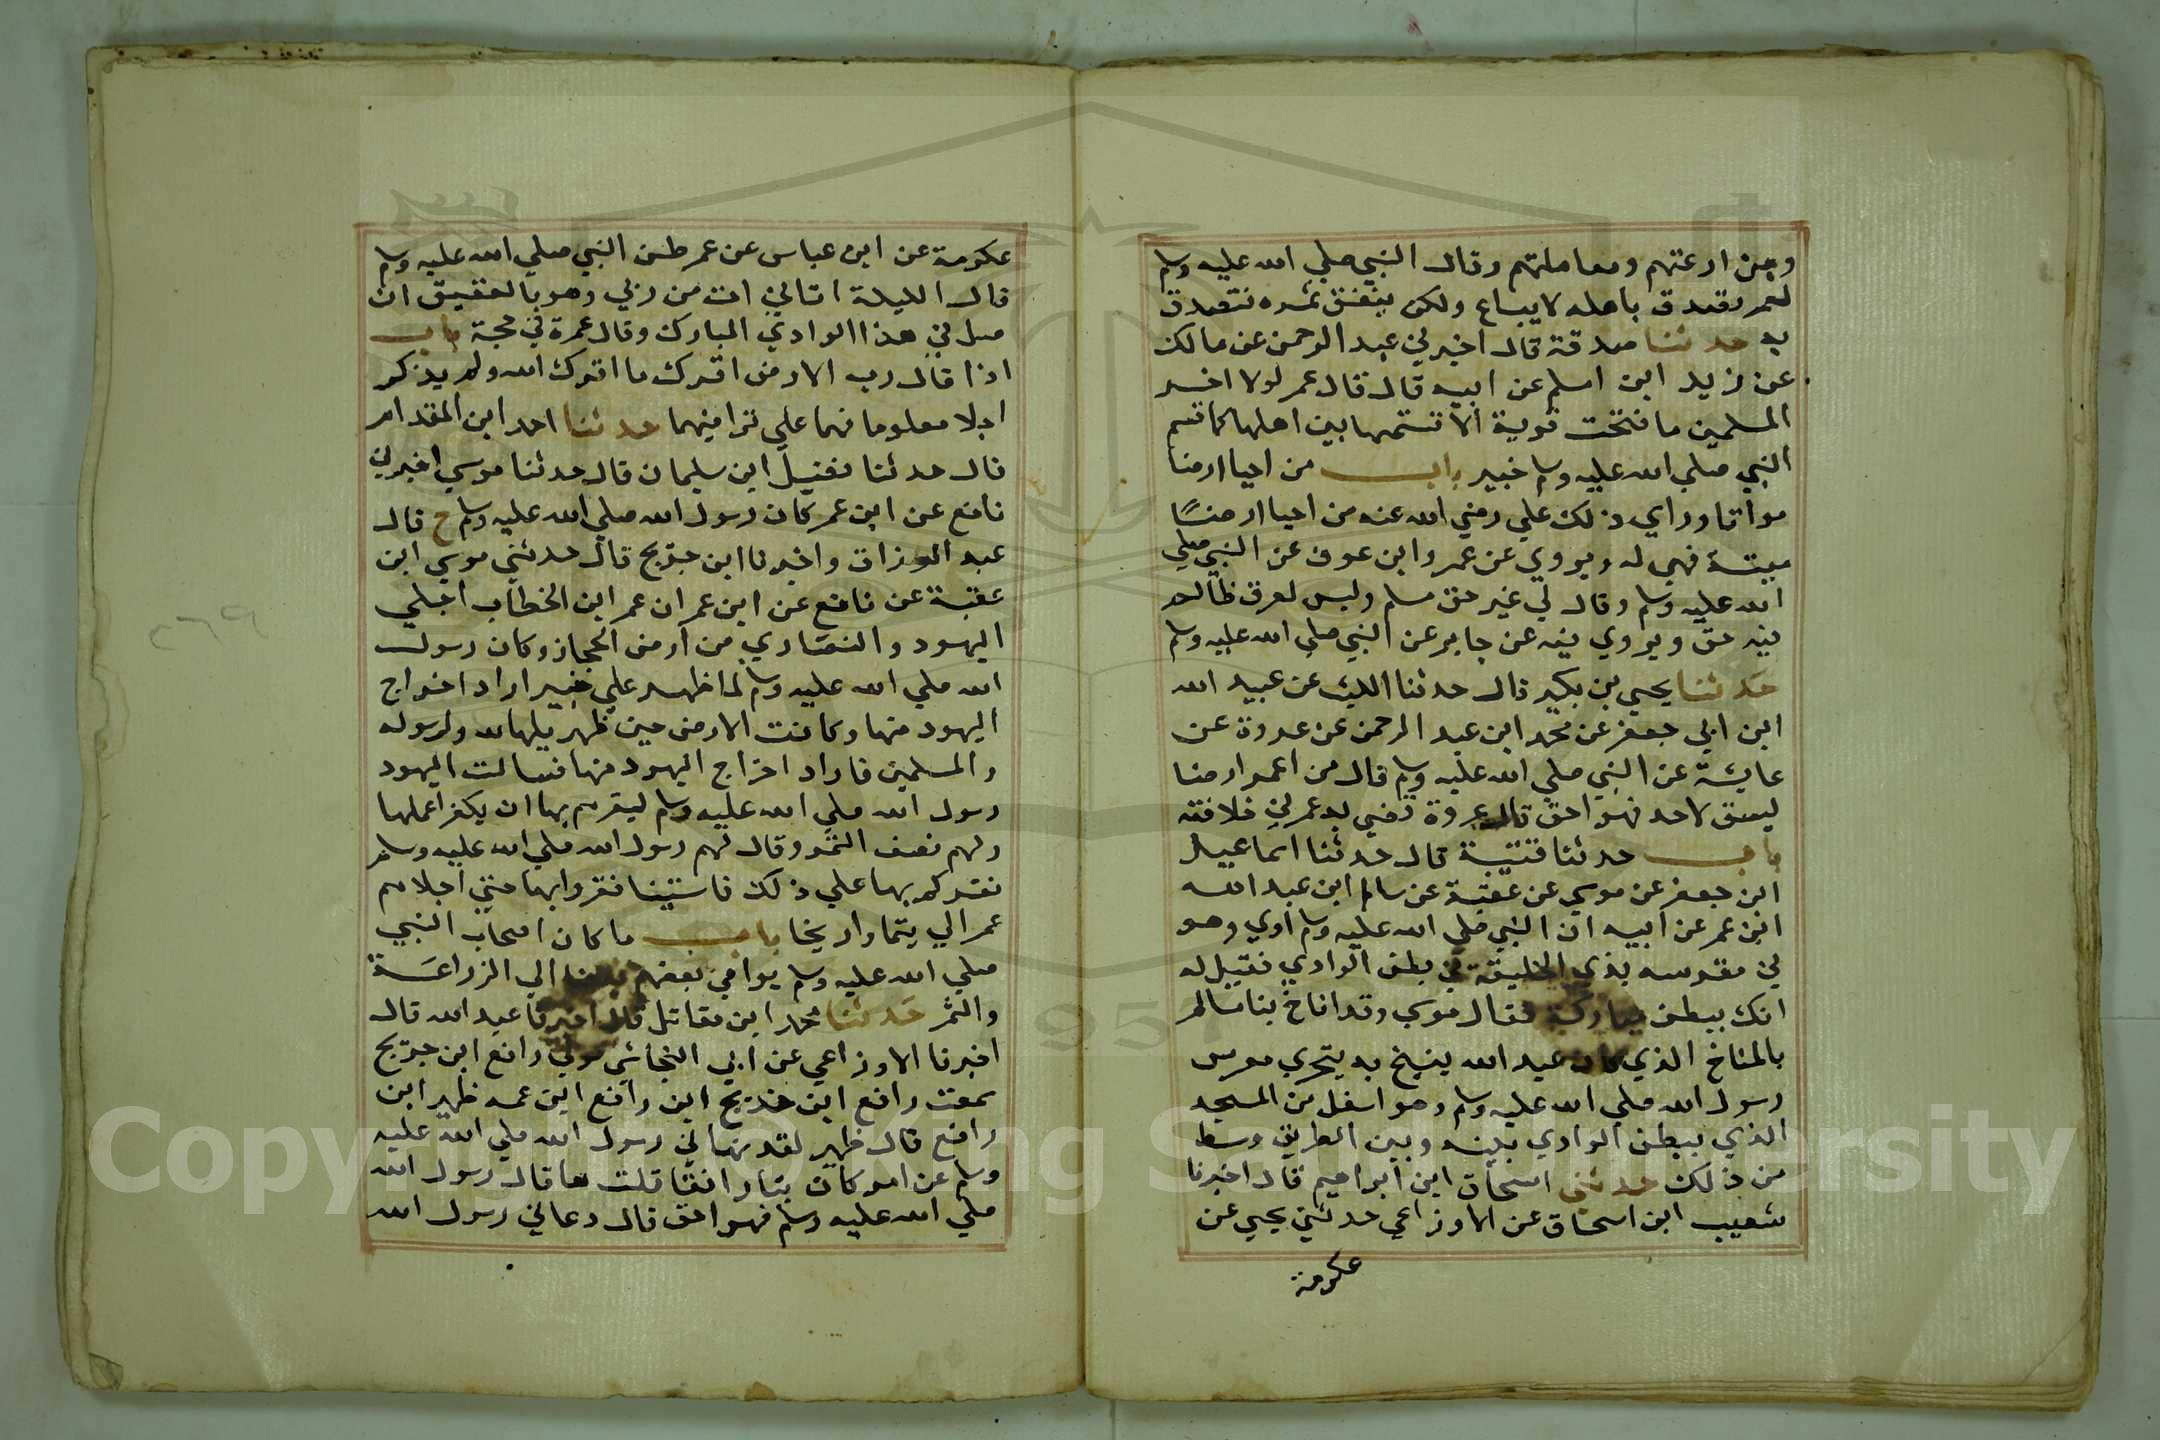 ومزارعتهم ومعاملتهم وقال النبي صلي الله عليه وسلم
لعمر تصدق باصله لا يباع ولكن ينفق ثمره فتصدق
به حدثنا صدقة قال اخبرني عبد الرحمن عن مالك
عن زيد ابن اسلم عن ابيه قال قال عمر لولا اخر
المسلمين ما فتحت قرية الا قسمتها بين اهلها كما قسم
النبي صلي الله عليه وسلم خيبر باب من احيا ارضا
مواتا وراي ذلك علي رضي الله عنه من احيا ارضًا
ميتة فهي له ويروي عن عمر وابن عوف عن النبي صلي
الله عليه وسلم وقال في غير حق مسلم وليس لعرق ظالم
فيه حق ويروي فيه عن جابر عن النبي صلي الله عليه وسلم
حدثنا يحيي بن بكير قال حدثنا الليث عن عبيد الله
ابن ابي جعفر عن محمد ابن عبد الرحمن عن عروة عن
عايشة عن النبي صلي الله عليه وسلم قال من اعمر ارضا
ليست لاحد فهو احق قال عروة قضي به عمر في خلافته
باب حدثنا قتيبة قال حدثنا اسماعيل
ابن جعفر عن موسي عن عقبة عن سالم ابن عبد الله
ابن عمر عن ابيه ان النبي صلي الله عليه وسلم اوي وهو
في معرسه بذي الحليفة في بطن الوادي فقيل له
انك ببطحن مباركة فقال موسي وقد اناخ بنا سالم
بالمناخ الذي كان عبد الله ينيخ به يتحري معرس
رسول الله صلي الله عليه وسلم وهو اسفل من المسجد
الذي ببطن الوادي بينه وبين الطريق وسط
من ذلك حدثني اسحاق ابن ابراهيم قال اخبرنا
شعيب ابن اسحاق عن الاوزاعي حدثني يحيي عن
عكرمة
عكرمة عن ابن عباس عن عمر عن النبي صلي الله عليه وسلم
قال الليلة اتاني ات من ربي وهو بالعقيق ان
صل في هذا الوادي المبارك وقال عمرة في حجة باب
اذا قال رب الارض اقرك ما اقرك الله ولم يذكر
اجلا معلوما فهما علي تراضيهما حدثنا احمد ابن المقدام
قال حدثنا فضيل ابن سليمان قال حدثنا موسي اخبرني
نافع عن ابن عمر كان رسول الله صلي الله عليه وسلم ح قال
عبد الرزاق واخبرنا ابن جريج قال حدثني موسي ابن
عقبة عن نافع عن ابن عمر ان عمر ابن الخطاب اجلي
اليهود والنصاري من ارض الحجاز وكان رسول
الله صلي الله عليه وسلم لما ظهر علي خيبر اراد اخراج
اليهود منها وكانت الارض حين ظهر عليها لله ولرسوله
والمسلمين فاراد اخراج اليهود منها فسالت اليهود
رسول الله صلي الله عليه وسلم ليقرهم بها ان يكفوا عملها
ولهم نصف الثمر وقال لهم رسول الله صلي الله عليه وسلم
نقركم بها علي ذلك ما شينا فقروا بها حتي اجلاهم
عمر الي يتما واريحا باب ما كان اصحاب النبي
صلي الله عليه وسلم يواسي بعضهم بعضا الي الزراعة
والثمر حدثنا محمد ابن مقاتل قال اخبرنا عبد الله قال
اخبرنا الاوزاعي عن ابي النجاشي مولي رافع ابن جريج
سمعت رافع ابن خديج ابن رافع ابن عمه ظهير ابن
رافع قال ظهير لقد نهاني رسول الله صلي الله عليه
وسلم عن امر كان بنا رافقا قلت ما قال رسول الله
صلي الله عليه وسلم فهو احق قال دعاني رسول الله
٢٦٩
1957
Copyright © King Saud University